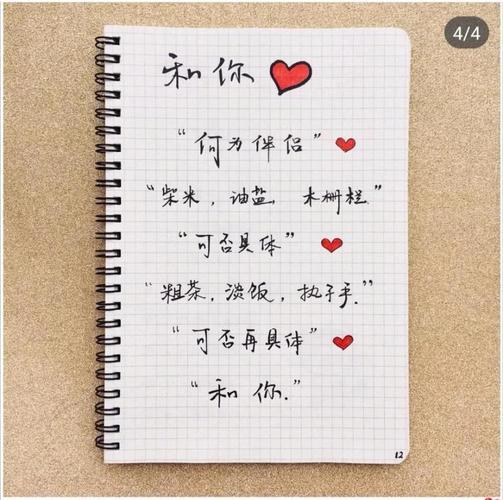 4/4
和你
“何为伴侣”
“柴米，油盐，木栅栏”
“可否具体”
“粗茶，淡饭，执子手.”
“可否再具体”
“和你.”
12